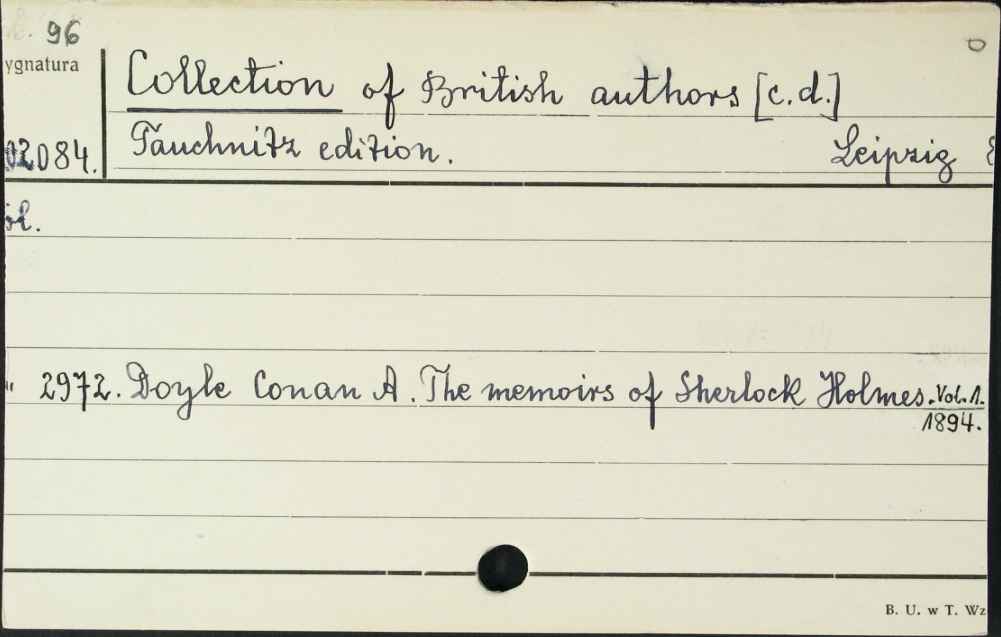 96
ygnatura
Collection of British authors [c.d.]
02084. Tauchnitz edition. Leipzig
" 2972. Doyle Conan A. The memoirs of Sherlock Holmes. Vol. 1.
1894.
B. U. w T. Wz